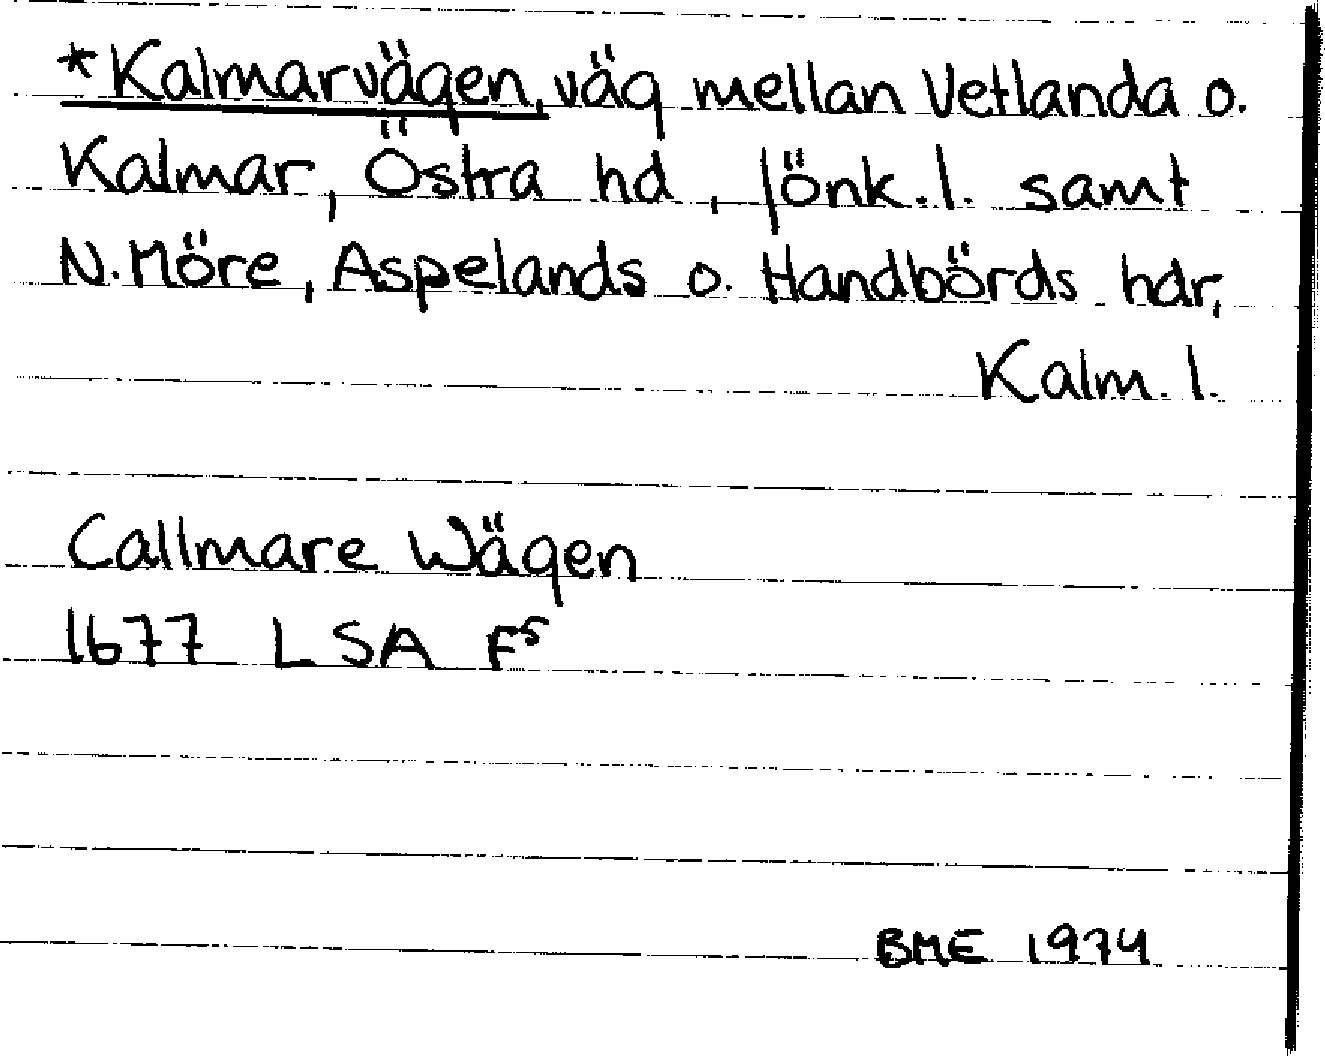 *Kalmarvägen, väg mellan Vetlanda o.
Kalmar, Östra hd, Jönk.l. samt
N.Möre, Aspelands o. Handbörds hdr,
Kalm. l.
Callmare Wägen
1677 LSA F⁵
BME 1974